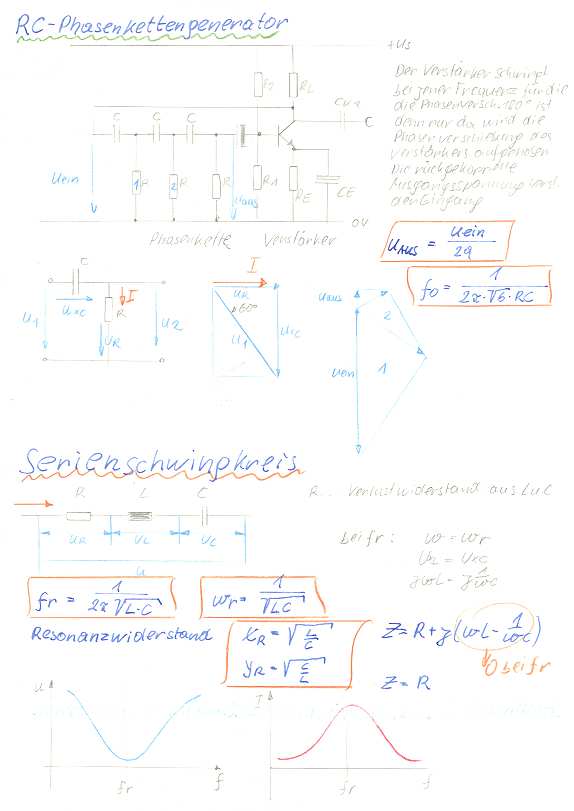 RC-Phasenkettengenerator
+Us
Der Verstärker schwingt
bei jener Frequenz für die
die Phasenversch. 180° ist
denn nur da wird die
Phasenverschiebung des
Verstärkers aufgehoben
Die rückgekoppelte
Ausgangsspannung
den Eingang
RL
C C C
C
Uein
1 R
2 R
R
Uaus
R1
RE
CE
0V
Phasenkette Verstärker
UAUS = Uein / 29
f0 = 1 / 2π·√6·RC
C
UXC
I
R
U1
UR
U2
I
UR
60°
U1
UXC
Uaus
Uein
2
1
Serienschwingkreis
R L C
UR UL UC
U
R.. Verlustwiderstand aus L u C
bei fr: ω = ωr
UL = UXC
jωL - j 1/ωC
fr = 1 / 2π√L·C
ωr = 1 / √LC
Resonanzwiderstand
XR = √L/C
YR = √C/L
Z = R + j(ωL - 1/ωC)
0 bei fr
Z = R
U
fr
f
I
fr
f